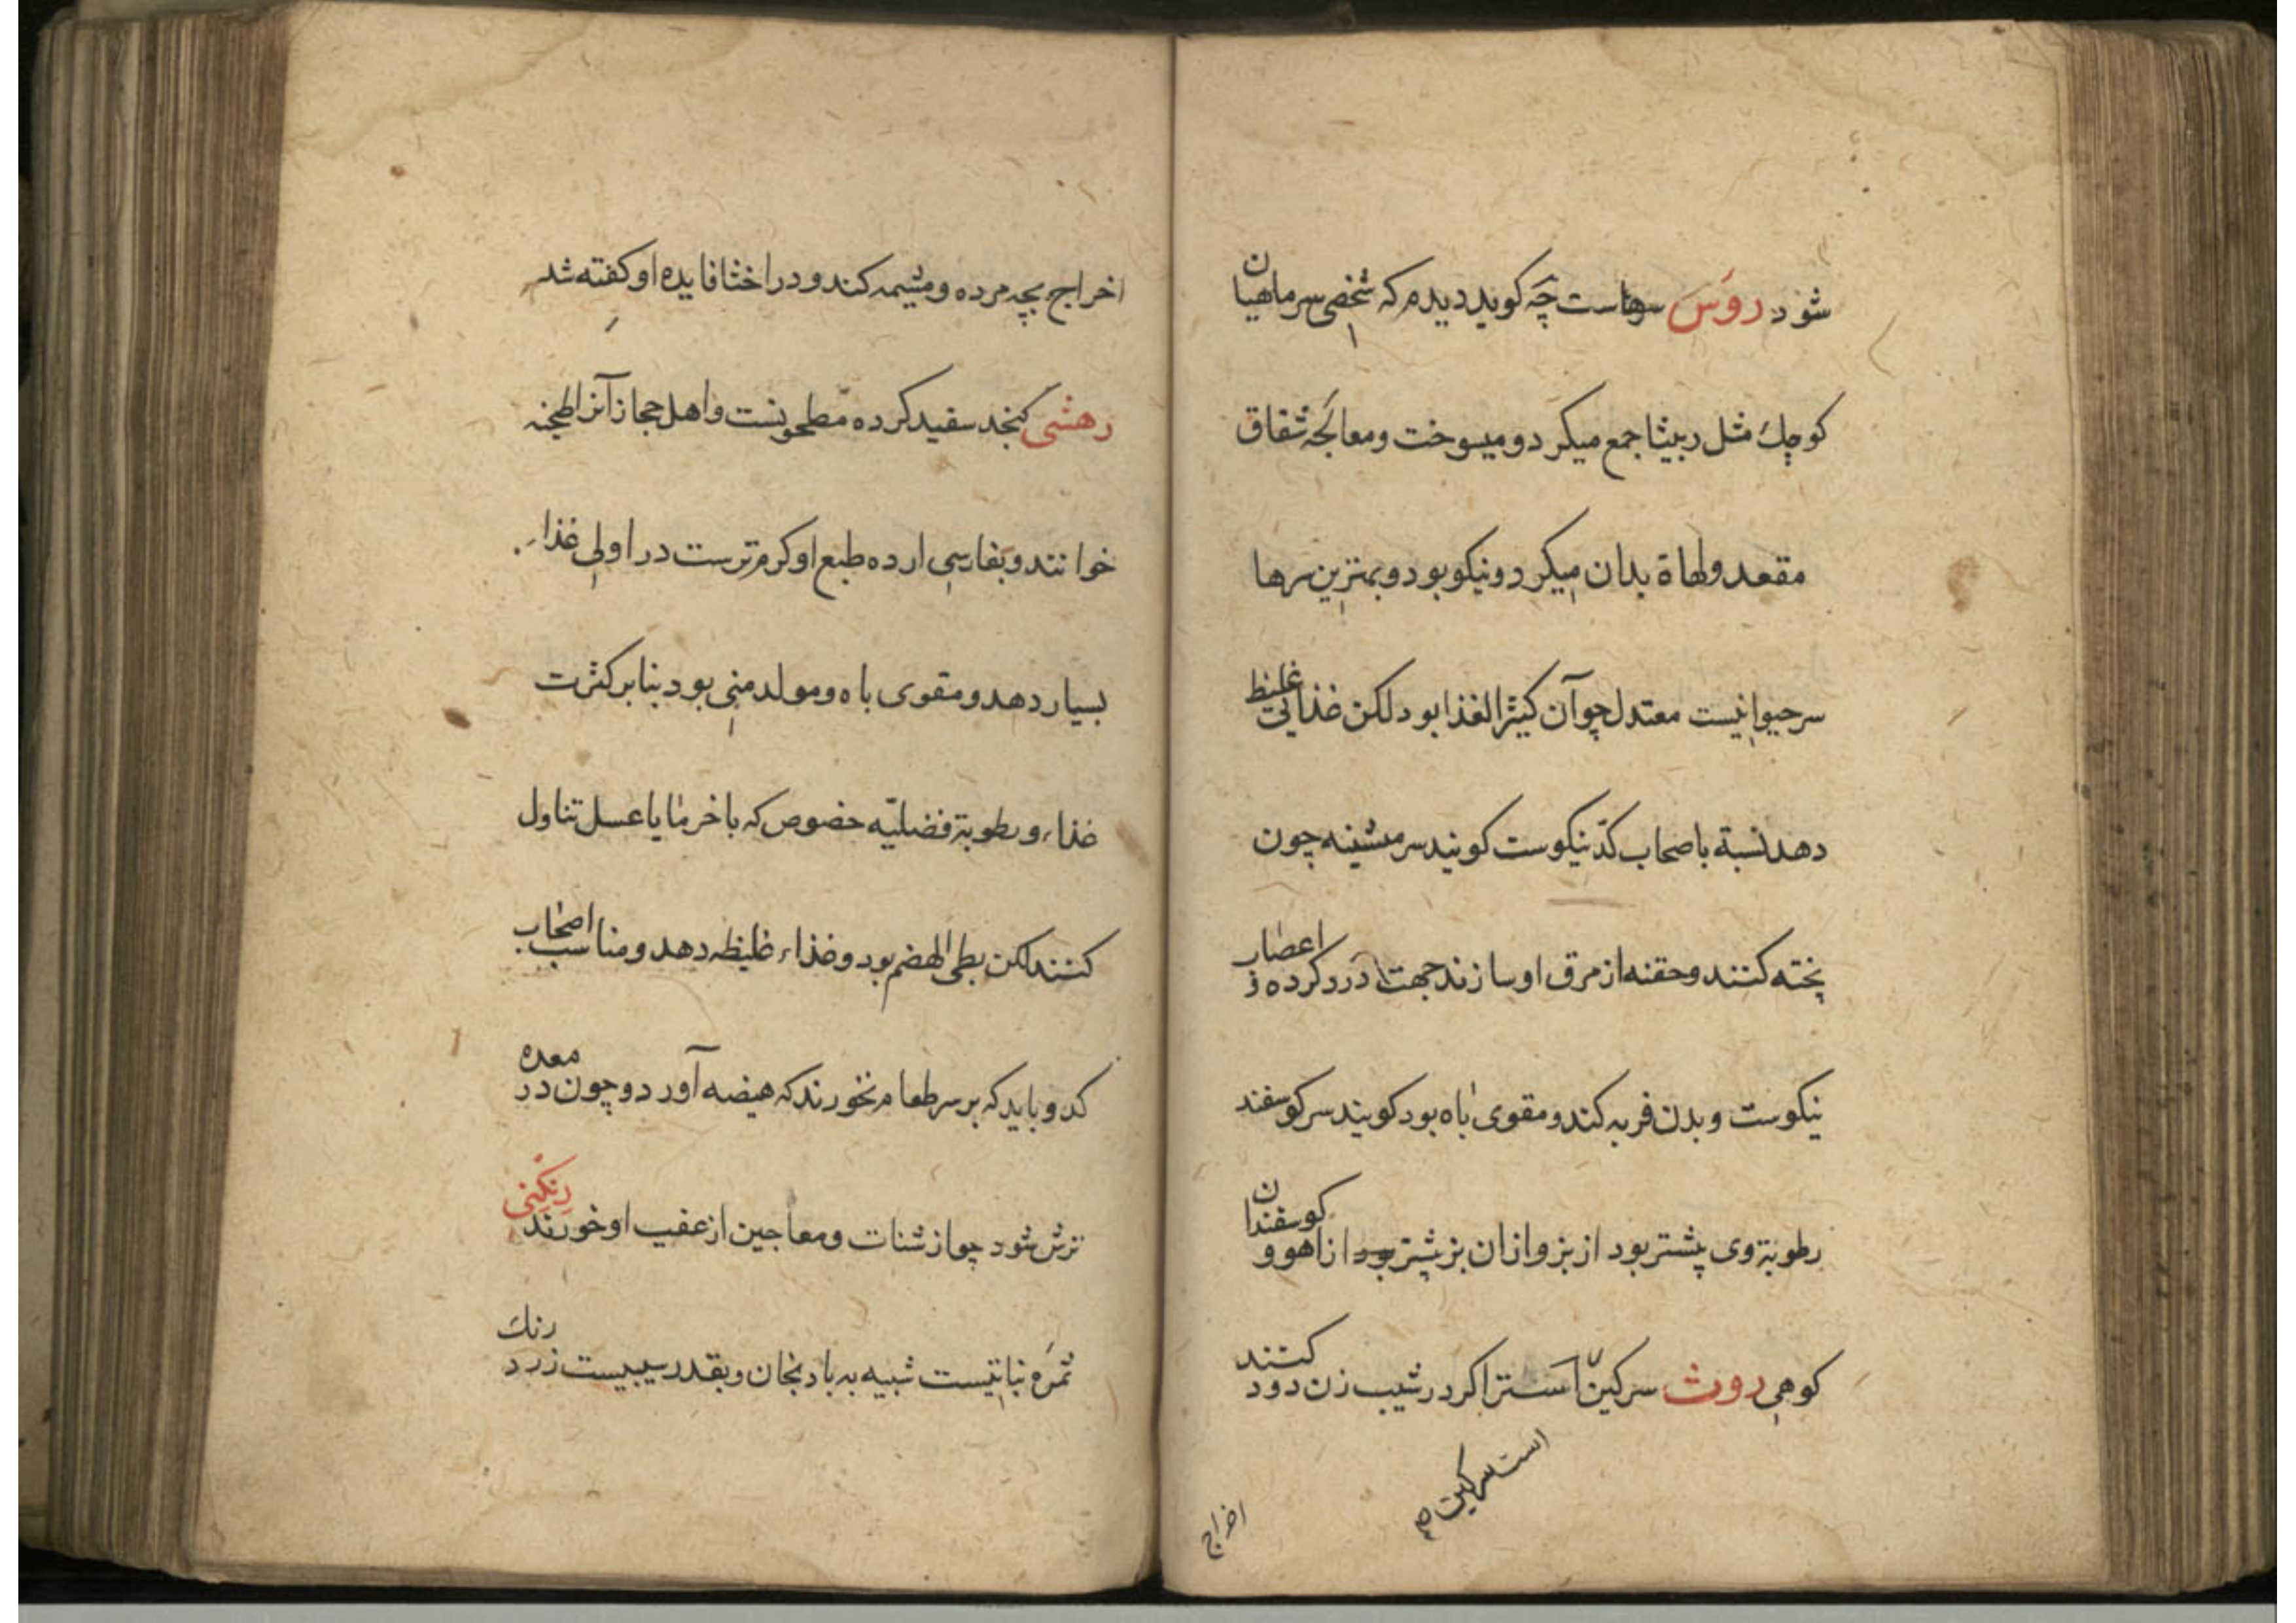 شود روس سرهاست چه کوید دیدم که شخصی سر ماهیان
کوچک مثل ربیثا جمع میکرد و میسوخت و معالجه شقاق
مقعد ولهاة بدان میکرد و نیکو بود و بهترین سرها
سر حیوانیست معتدل چو آن کثیر الغذا بود لکن غذائی غلیظ
دهد نسبة باصحاب کدّ نیکوست کویند سر میشینه چون
پخته کنند و حقنه از مرق او سازند جهت درد کرده و اعصار
نیکوست و بدن فربه کند و مقوی باه بود کویند سر کوسفند
رطوبة وی پشتر بود از بز و ازان بز پشتر بود از اهو و کوسفندان
کوهی روث سرکین است اکر در شیب زن دود کنند
است سرکین صح
اخراج
اخراج بچه مرده و مشیمه کند و در اخثا فایده او کفته شد
رهشی کنجد سفید کرده مطحونست و اهل حجاز آنرا طحنه
خوانند و بفارسی ارده طبع او کرم ترست در اولی غذاء
بسیار دهد و مقوی باه و مولد منی بود بنا بر کثرت
غذاء و رطوبة فضلیّه خصوص که با خرما یا عسل تناول
کنند لکن بطی الهضم بود و غذاء غلیظ دهد و مناسب اصحاب
کد و باید که بر سر طعام نخورند که هیضه آورد و چون در معده
ترش شود جوازشنات و معاجین از عقب او خورند رنکنی
ثمره نباتیست شبیه به بادنجان و بقدر سیبیست زرد رنک